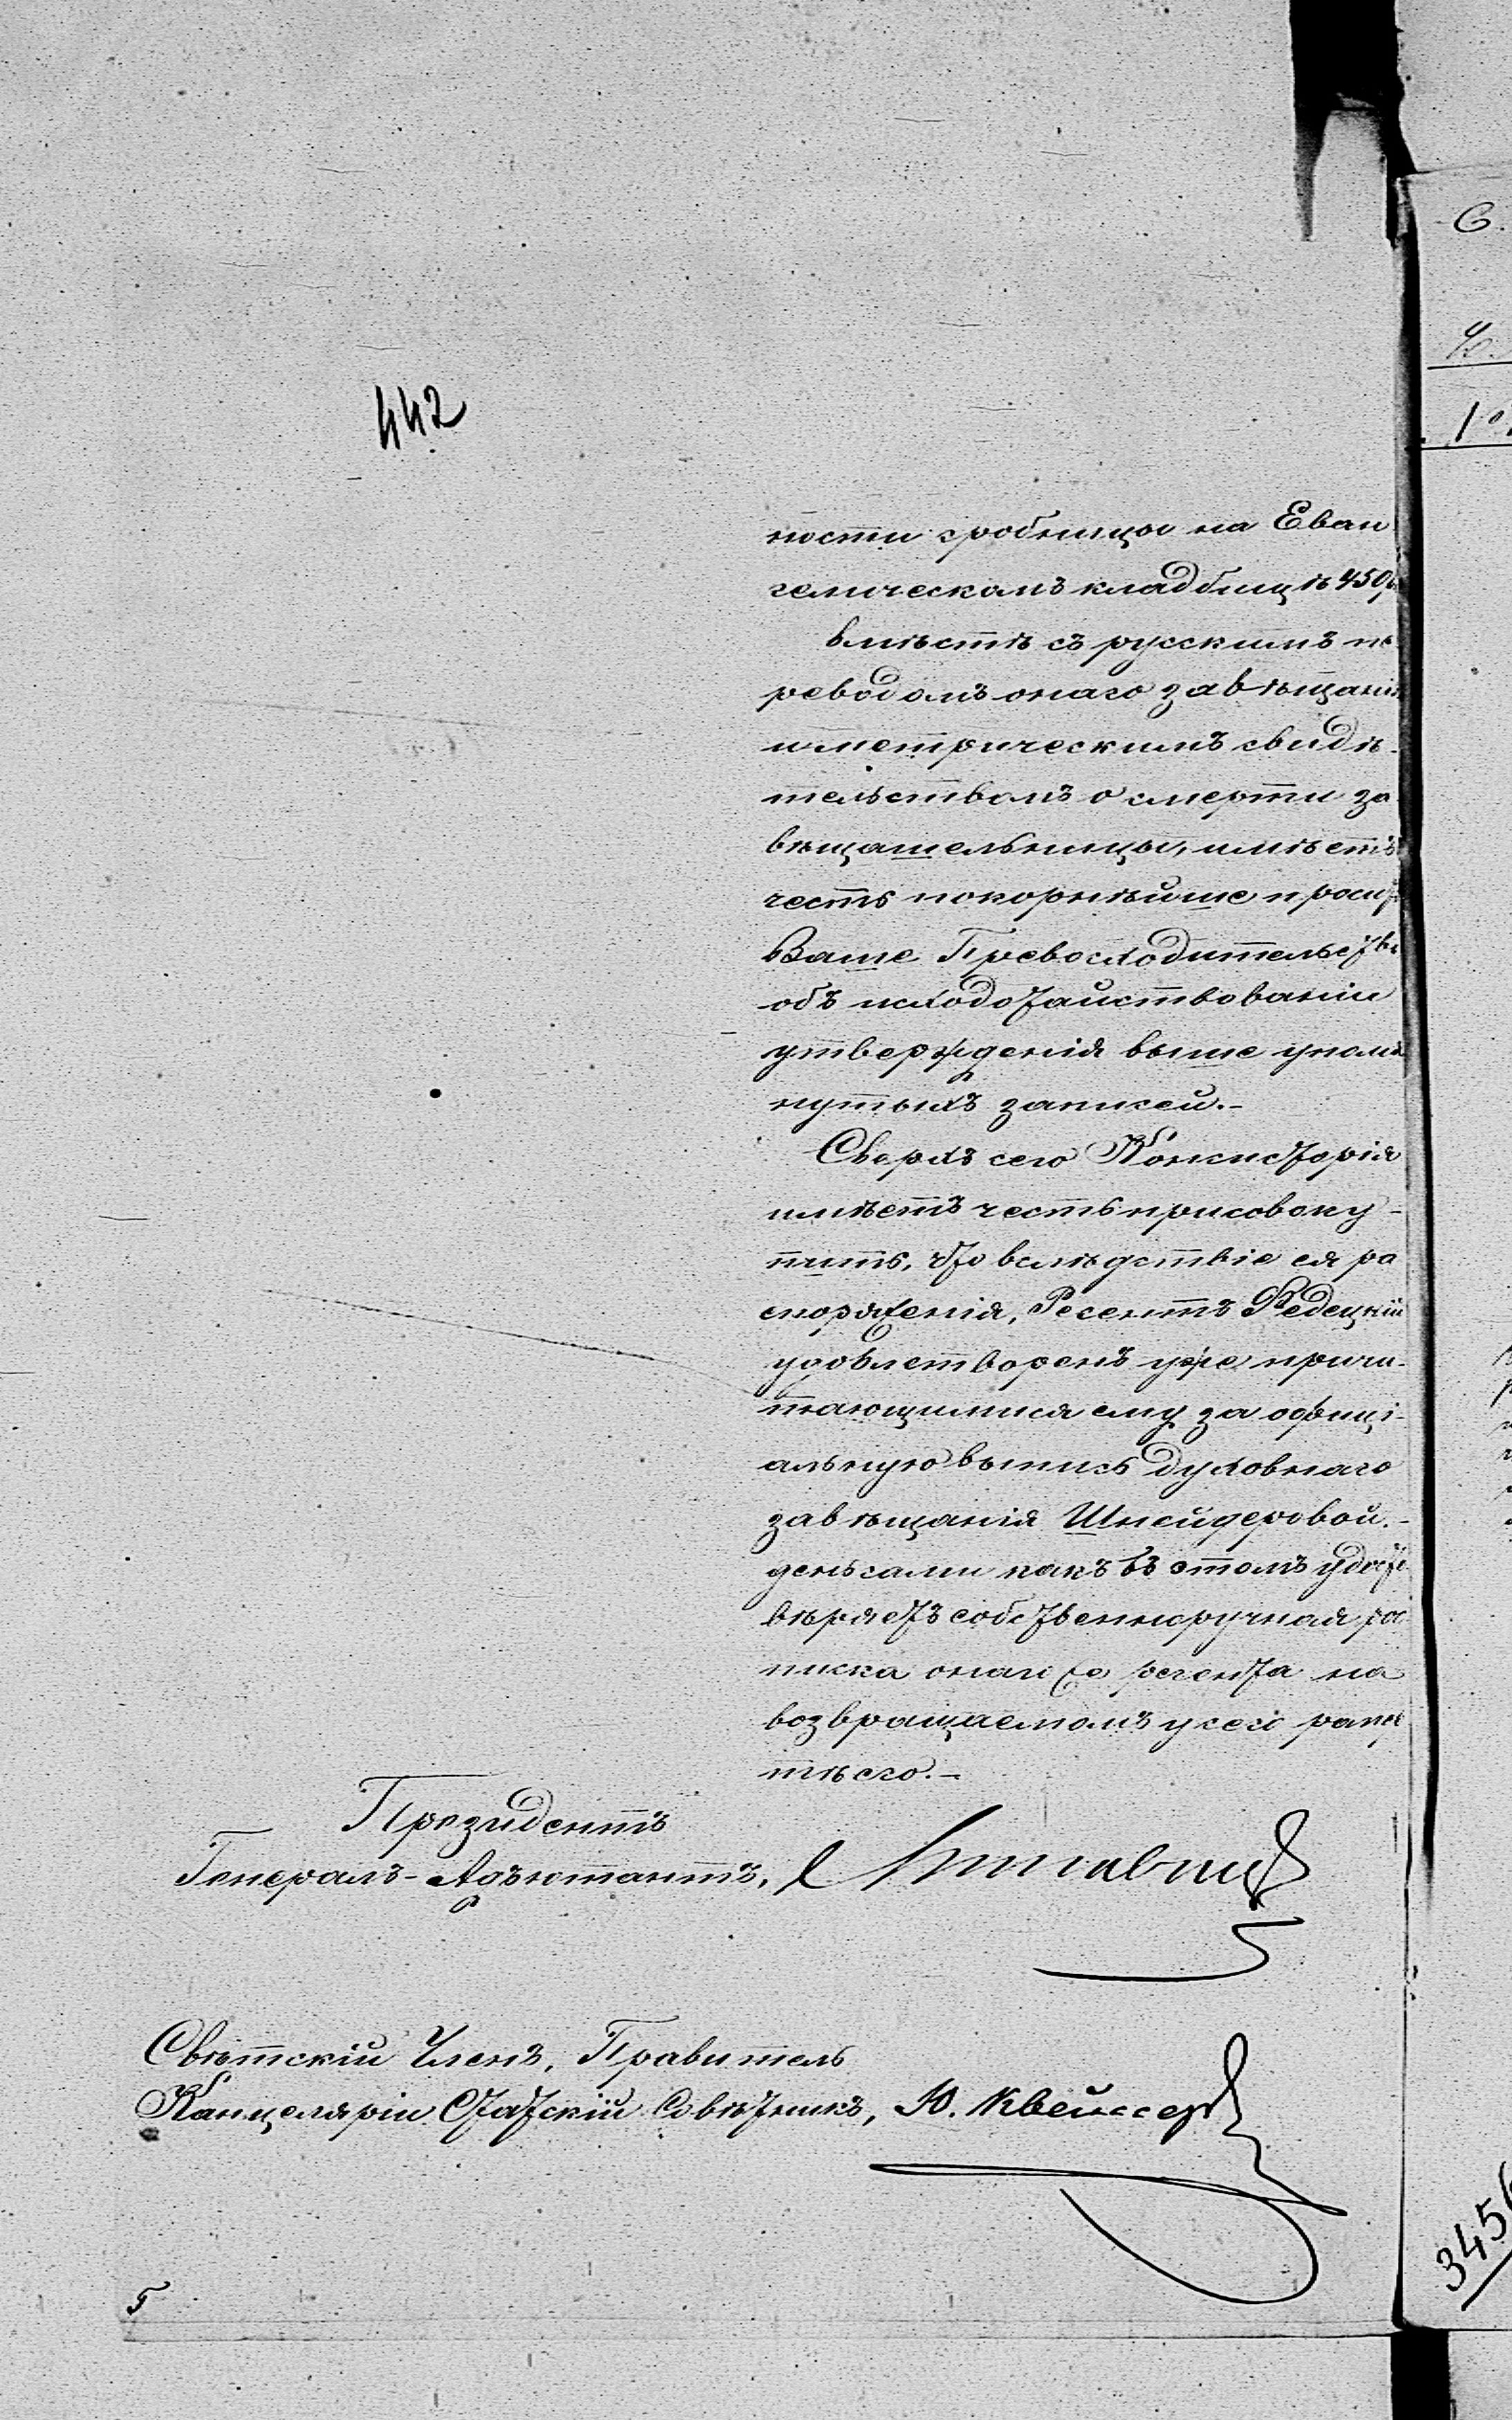 442
ности гробницы на Еван
гелическомъ кладбищѣ 450р
вмѣстѣ съ русскимъ пе
реводомъ онаго завѣщанія
и метрическимъ свидѣ-
тельствомъ о смерти за
вѣщательницы, имѣетъ
честь покорнѣйше просить
Ваше Превосходительство
объ исходотайствованіи
утвержденія выше упомя
нутыхъ записей.-
Сверхъ сего Консисторія
имѣетъ честь присовоку-
пить, что вслѣдствіе ея ра
споряженія, Регентъ Редецкій
удовлетворенъ уже причи-
тающимися ему за офиці-
альную выпись духовнаго
завѣщанія Шнейдеровой.-
деньгами какъ въ этомъ удосто
вѣряетъ собственноручная ро
писка онаго же регента на
возвращаемомъ у сего рапор
тѣ его.-
Президентъ
Генералъ-Адъютантъ,
Свѣтскій Членъ, Правитель
Канцеляріи Статскій Совѣтникъ, Ю. Квейссер
С.
1
3456